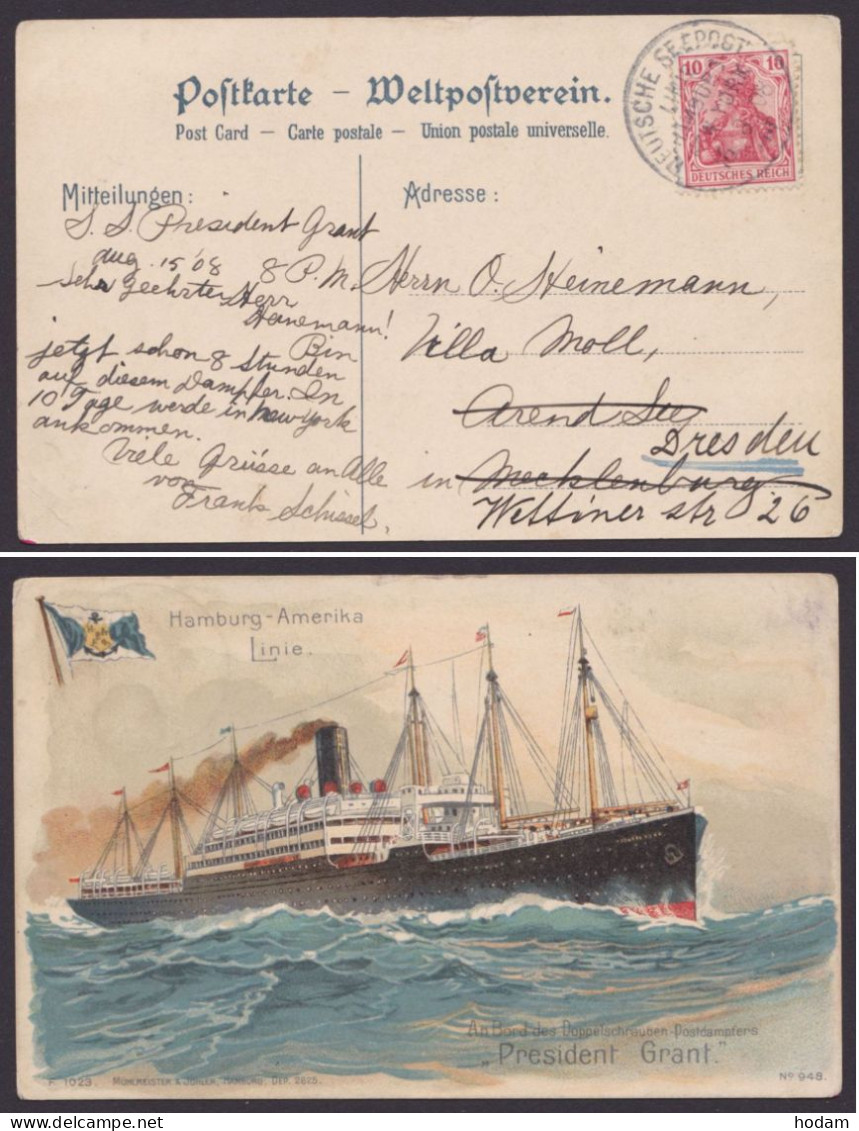 Postkarte – Weltpostverein.
Post Card – Carte postale – Union postale universelle.
DEUTSCHE SEEPOST
10 10
DEUTSCHES REICH
Mitteilungen:
Adresse:
S. S. President Grant
Aug. 15 '08 8 P.M.
Sehr Geehrter Herr
Heinemann!
Bin
jetzt schon 8 Stunden
auf diesem Dampfer. In
10 Tage werde in New York
ankommen.
Viele Grüsse an Alle
von
Frank Schissel.
Herrn O. Heinemann,
Villa Moll,
Arend See
Dresden
in Mecklenburg
Wettiner str 26
Hamburg-Amerika
Linie.
An Bord des Doppelschrauben-Postdampfers
„President Grant."
F. 1023. MÜHLMEISTER & JOHLER, HAMBURG. DEP. 2825.
No 948.
hodam